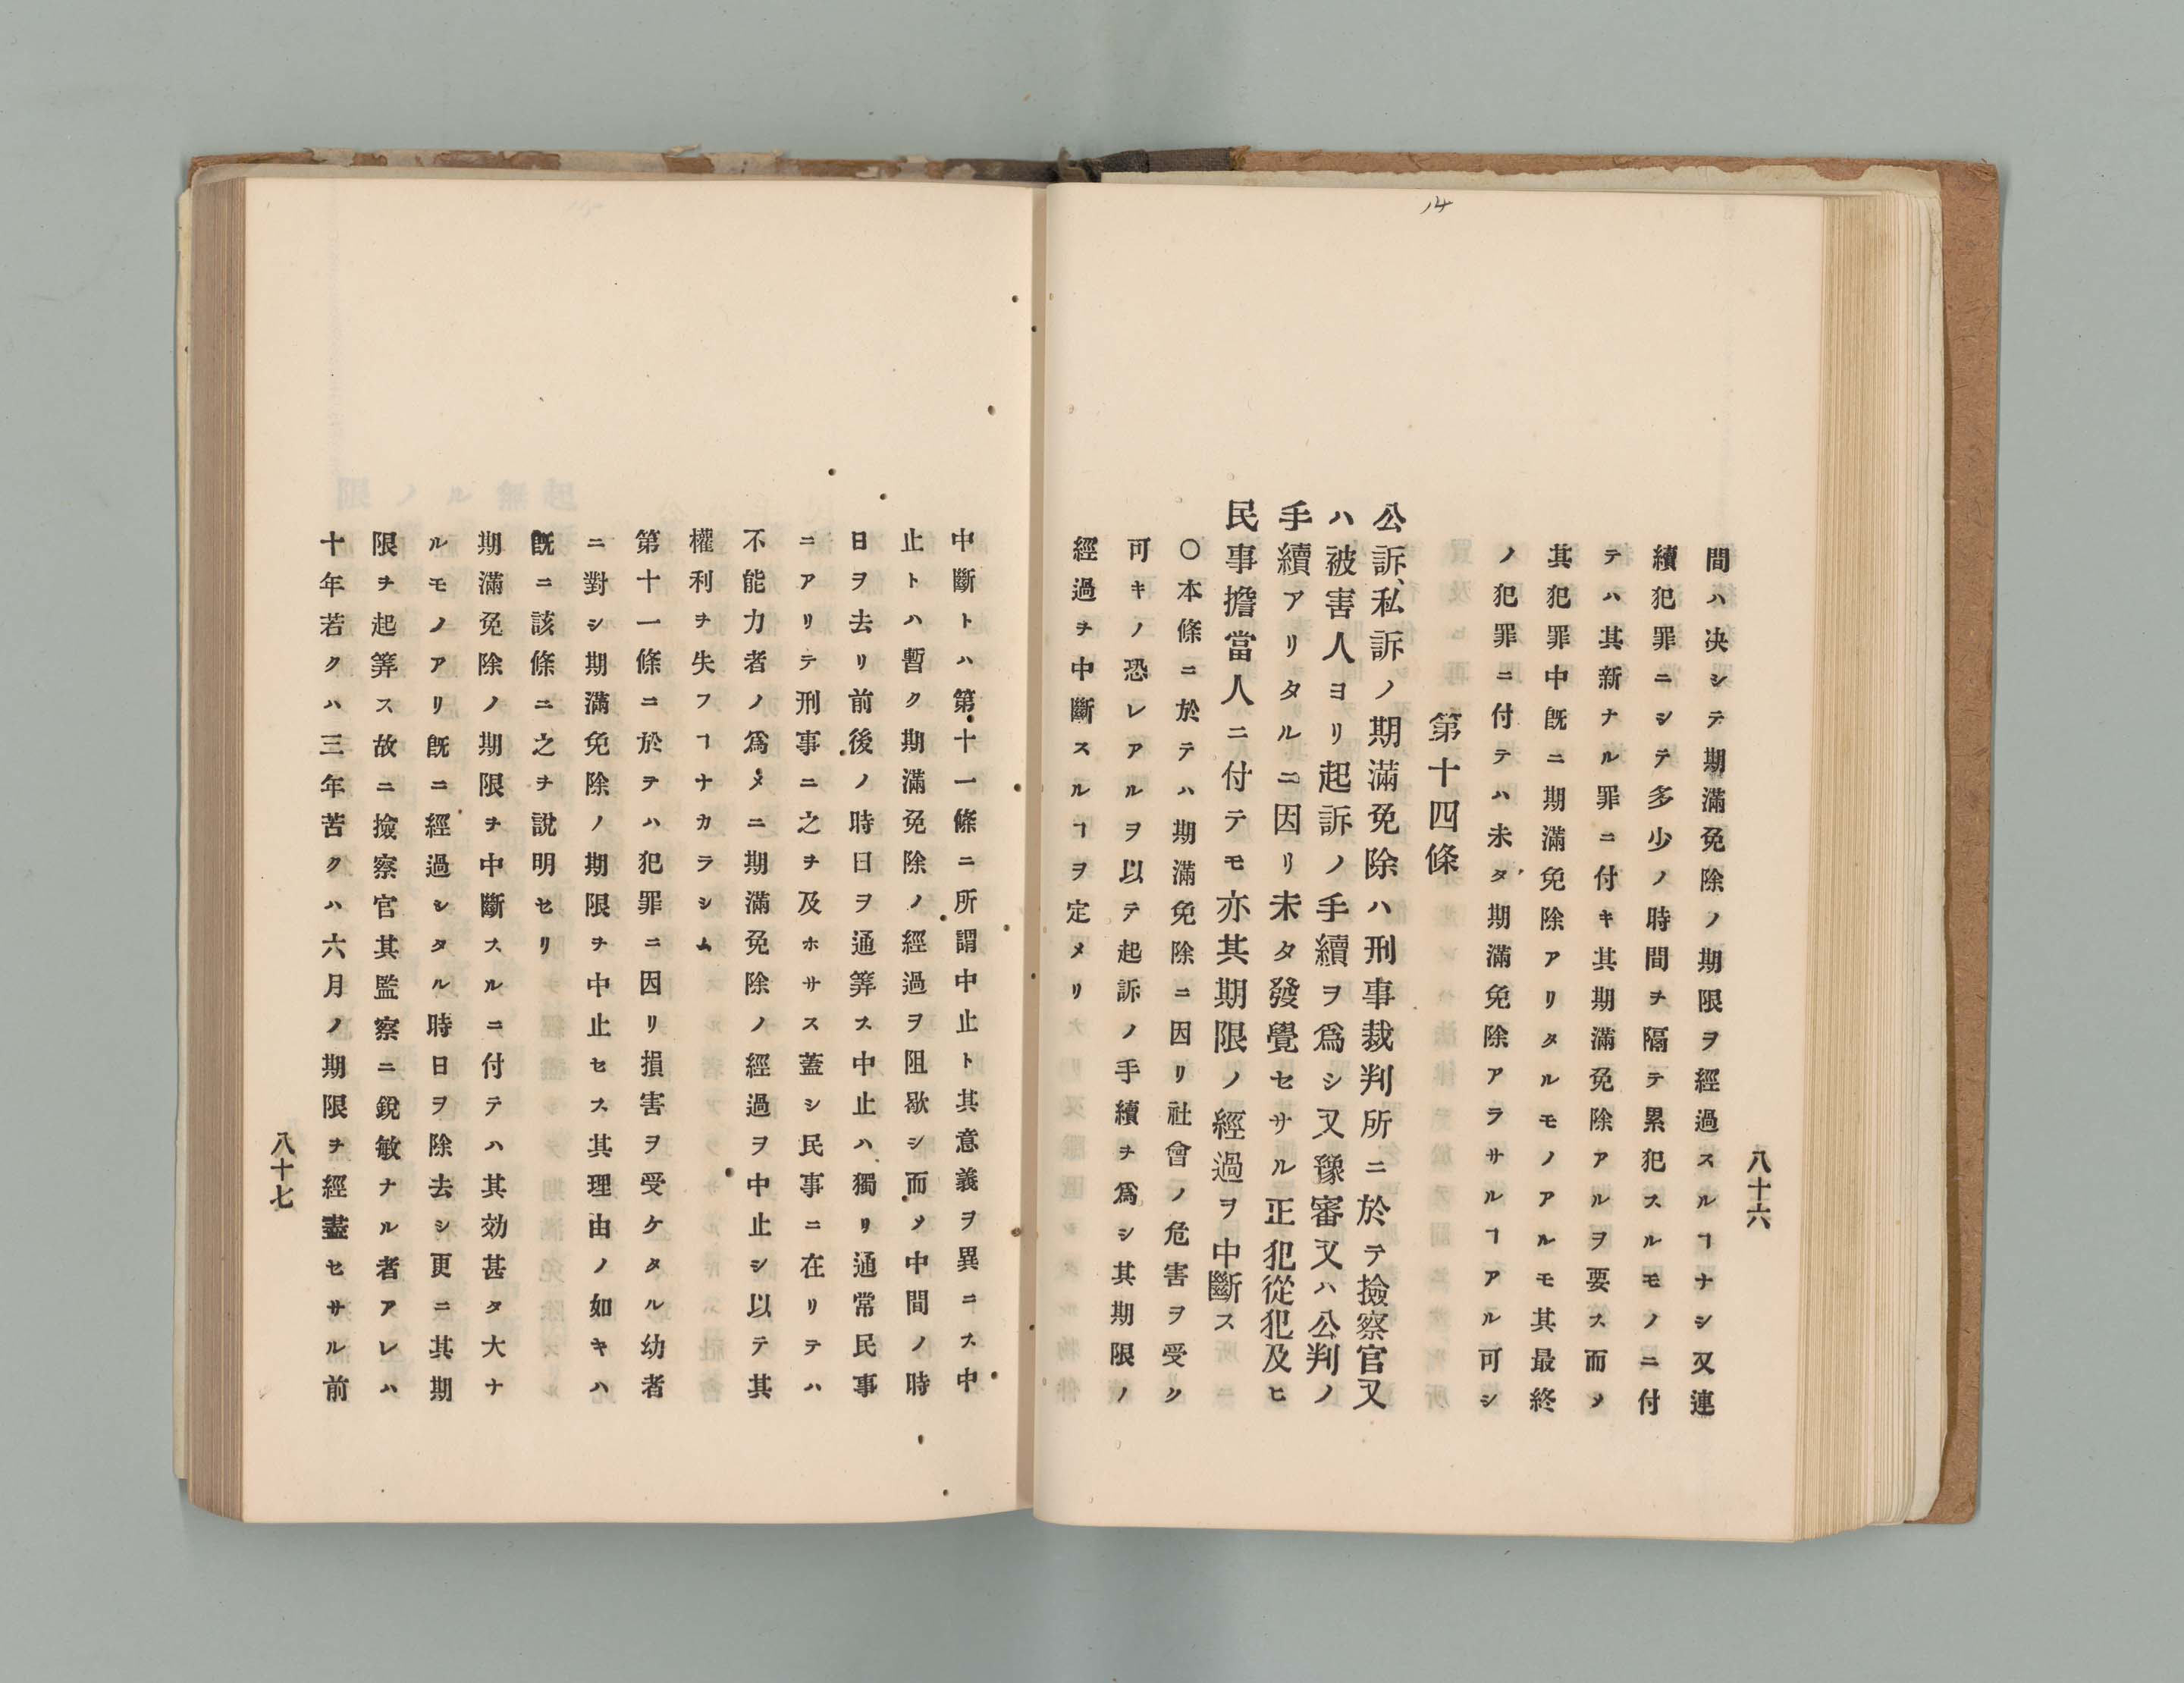 14
八十六
間ハ決シテ期滿免除ノ期限ヲ經過スルヿナシ又連
續犯罪ニシテ多少ノ時間ヲ隔テ累犯スルモノニ付
テハ其新ナル罪ニ付キ其期滿免除アルヲ要ス而〆
其犯罪中旣ニ期滿免除アリタルモノアルモ其最終
ノ犯罪ニ付テハ未タ期滿免除アラサルヿアル可シ
第十四條
公訴、私訴ノ期滿免除ハ刑事裁判所ニ於テ撿察官又
ハ被害人ヨリ起訴ノ手續ヲ爲シ又豫審又ハ公判ノ
手續アリタルニ因リ未タ發覺セサル正犯從犯及ヒ
民事擔當人ニ付テモ亦其期限ノ經過ヲ中斷ス
〇本條ニ於テハ期滿免除ニ因リ社會ノ危害ヲ受ク
可キノ恐レアルヲ以テ起訴ノ手續ヲ爲シ其期限ノ
經過ヲ中斷スルヿヲ定メリ
中斷トハ第十一條ニ所謂中止ト其意義ヲ異ニス中
止トハ暫ク期滿免除ノ經過ヲ阻歇シ而〆中間ノ時
日ヲ去リ前後ノ時日ヲ通筭ス中止ハ獨リ通常民事
ニアリテ刑事ニ之ヲ及ホサス蓋シ民事ニ在リテハ
不能力者ノ爲メニ期滿免除ノ經過ヲ中止シ以テ其
權利ヲ失フヿナカラシム
第十一條ニ於テハ犯罪ニ因リ損害ヲ受ケタル幼者
ニ對シ期滿免除ノ期限ヲ中止セス其理由ノ如キハ
旣ニ該條ニ之ヲ說明セリ
期滿免除ノ期限ヲ中斷スルニ付テハ其効甚タ大ナ
ルモノアリ旣ニ經過シタル時日ヲ除去シ更ニ其期
限ヲ起筭ス故ニ撿察官其監察ニ銳敏ナル者アレハ
十年若クハ三年苦クハ六月ノ期限ヲ經盡セサル前
八十七